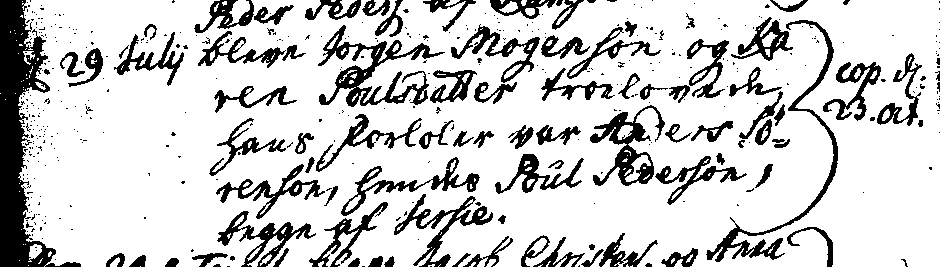 Peder Peders. af
d. 29 Julij bleve Jørgen Mogensøn og Ka
ren Poulsdatter troelovede,
hans Forlover var Anders Sö-
rensøn, hendes Poul Pedersøn,
begge af Jersie.
cop. d.
23. oct.
bleve Jacob Christens. og Anna